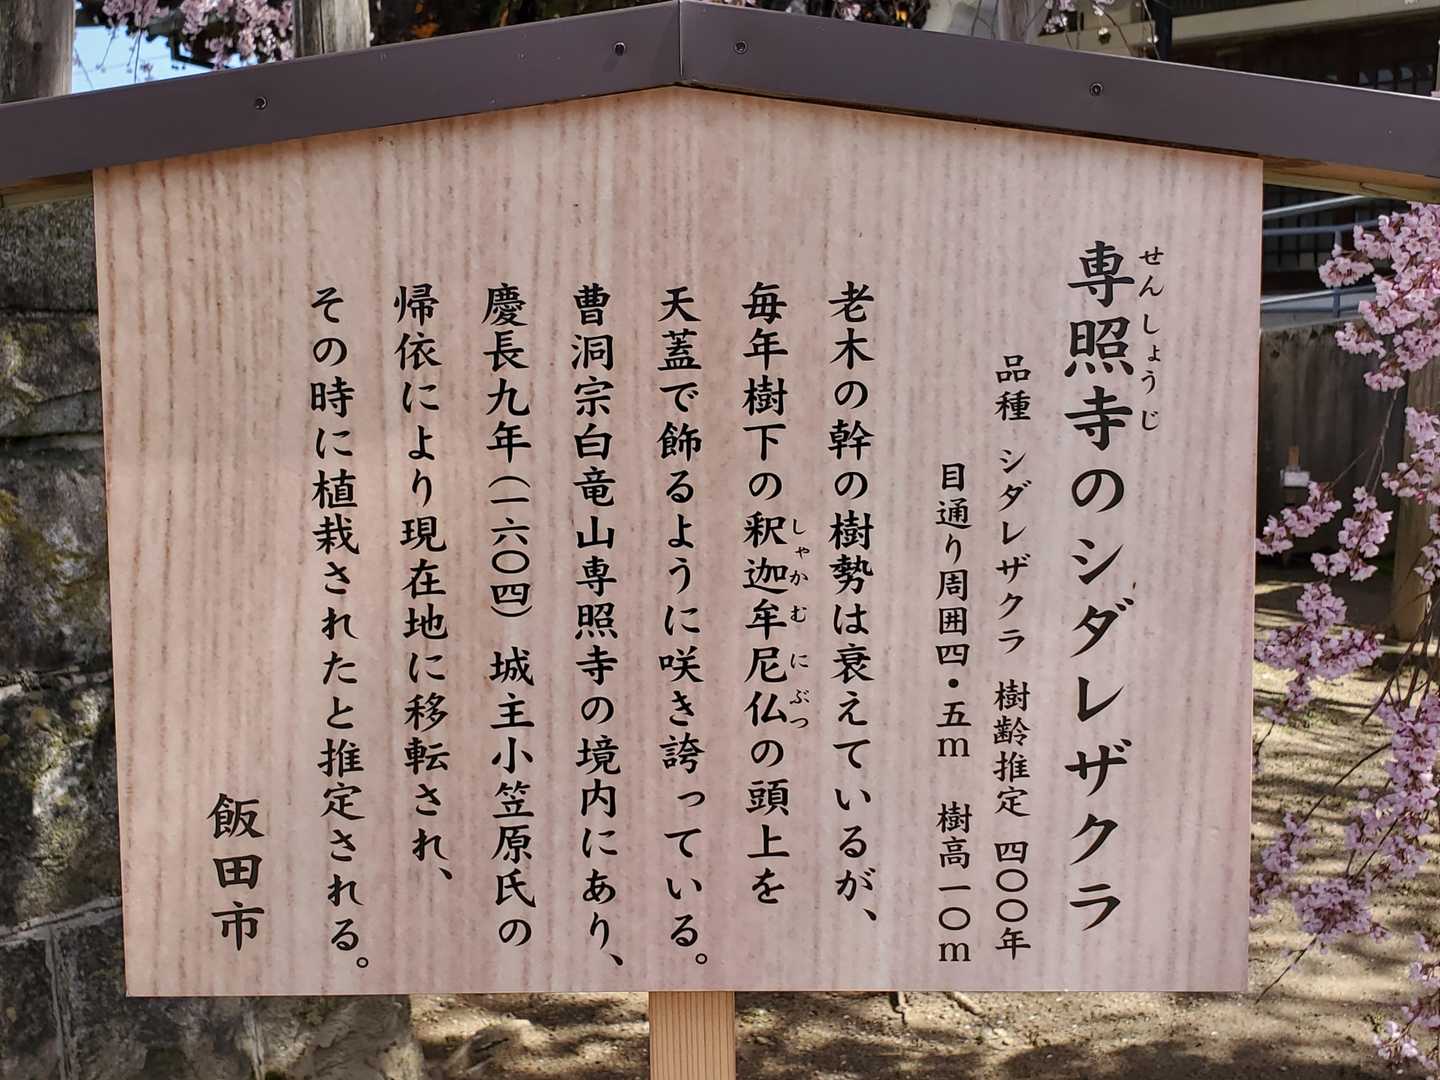 専照寺のシダレザクラ
せんしょうじ
品種 シダレザクラ 樹齢推定 四〇〇年
目通り周囲四・五m 樹高一〇m
老木の幹の樹勢は衰えているが、
毎年樹下の釈迦牟尼仏の頭上を
しゃかむにぶつ
天蓋で飾るように咲き誇っている。
曹洞宗白竜山専照寺の境内にあり、
慶長九年(一六〇四)城主小笠原氏の
帰依により現在地に移転され、
その時に植栽されたと推定される。
飯田市